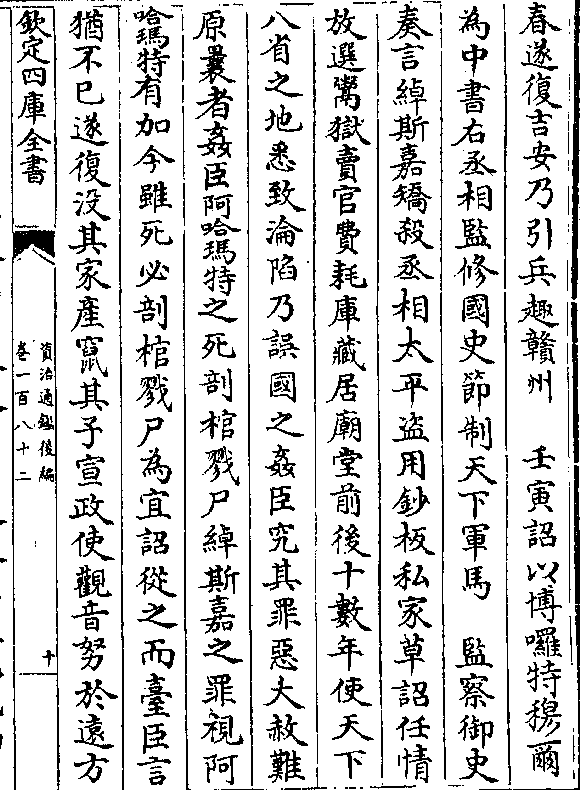 春遂復吉安乃引兵趣贛州　壬寅詔以博囉特穆爾
為中書右丞相監修國史節制天下軍馬　監察御史
奏言綽斯嘉矯殺丞相太平盜用鈔板私家草詔任情
放選鬻獄賣官費耗庫藏居廟堂前後十數年使天下
八省之地悉致淪陷乃誤國之姦臣究其罪惡大赦難
原曩者姦臣阿哈瑪特之死剖棺戮尸綽斯嘉之罪視阿
哈瑪特有加今雖死必剖棺戮尸為宜詔從之而臺臣言
猶不已遂復没其家產竄其子宣政使觀音努於遠方
欽定四庫全書
資治通鑑後編
卷一百八十二
十